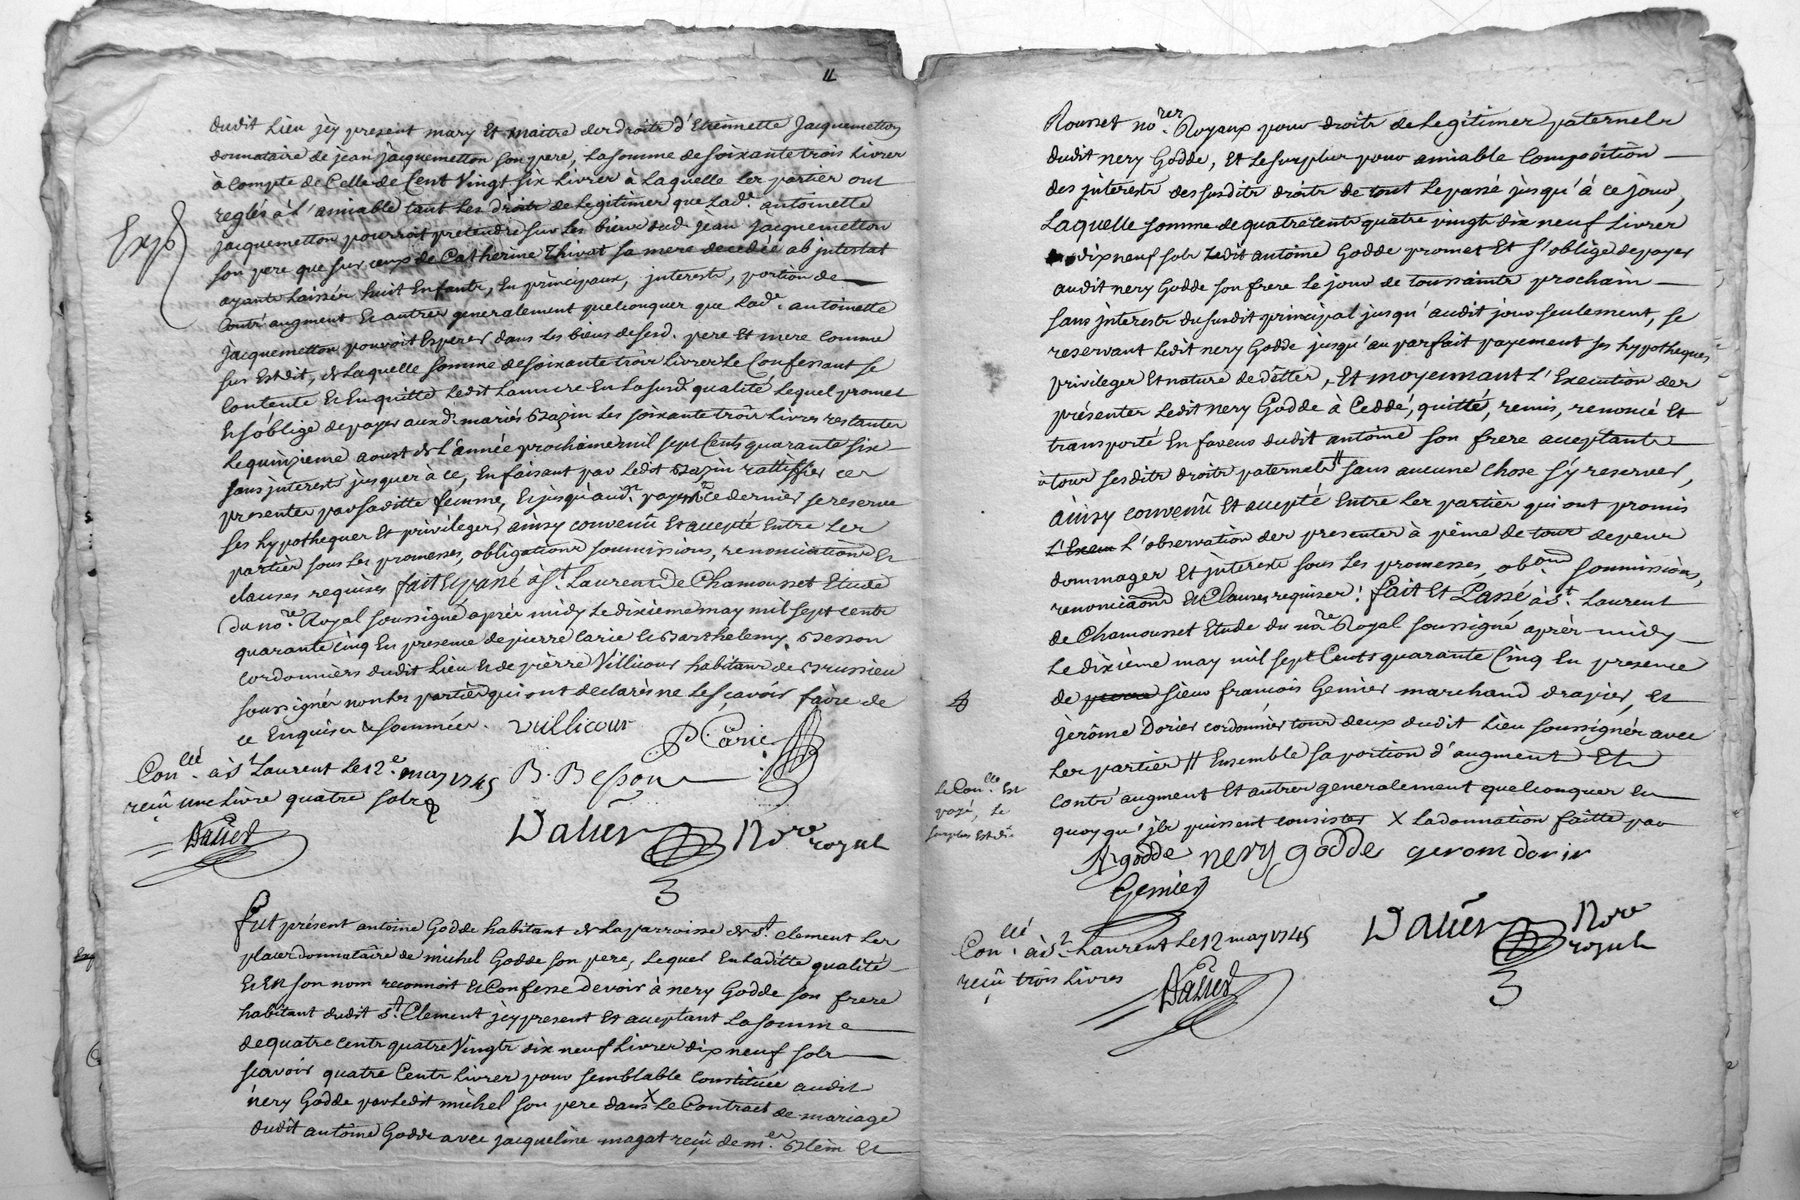 11
dudit Lieu jcy present mary Et maitre des droits d'Etiennette Jacquemetton
donnataire de jean Jacquemetton son pere, La somme de soixante trois Livres
à compte de Celle de Cent Vingt six Livres à Laquelle Les parties ont
reglés à L'amiable tant Les droits de Legitimes que Lade. antoinette
jacquemetton pourroit pretendre sur Les biens dud. jean Jacquemetton
son pere que sur ceux de Catherine Thivat sa mere decedée ab intestat
Exp
ayante Laissée huit Enfants, En principaux, interests, portion de
Contr'augment Et autres generalement quelconques que Lade. antoinette
Jacquemetton pouvoit Esperer dans Les biens desd. pere Et mere comme
sus Est dit, de Laquelle somme de soixante trois Livres Le Confessant se
Contente Et En quitte Ledit Lannire En La susd. qualité Lequel promet
Et s'oblige de payer auxd. mariés Bazin Les soixante trois Livres restantes
Le quinzieme aoust de L'année prochaine mil sept Cents quarante six
sans interests jusques à ce, En faisant par Ledit Bazin rattiffier ces
presentes par saditte femme, Et jusqu'aud. payemt. ce dernier se reserve
ses hypotheques Et privileges, ainsy convenû Et accepté Entre Les
parties sous Les promesses, obligations soumissions, renonciations Et
clauses requises fait Et passé à St. Laurent de Chamousset Etude
du nore. Royal soussigné après midy Le dixieme may mil sept cents
quarante cinq En presence de pierre Carie Et Barthelemy Besson
cordonniers dudit Lieu Et de pierre Villicour habitant de Brussieu
soussignés non Les parties qui ont declarés ne Le sçavoir faire de
ce Enquises & sommées. Vuillicour
P. Carie
B. Besson
Conllé. à St Laurent Le 12e. may 1745
reçû une Livre quatre sols
Dalier
Dalier Nore royal
fut présent antoine Godde habitant de La parroisse de St. Clement Les
places donnataire de michel Godde son pere, Lequel En Laditte qualité
Et En son nom reconnoit Et Confesse devoir à nery Godde son frere
habitant dudit St. Clement jcy present Et acceptant La somme
de quatre cents quatre Vingts dix neuf Livres dix neuf sols
sçavoir quatre Cents Livres pour semblable constituée audit
nery Godde par Ledit michel son pere dans X Le Contract de mariage
dudit antoine Godde avec jacqueline magat reçû de mes. Blein Et
Rousset nores. Royaux pour droits de Legitimes paternels
dudit nery Godde, Et Le surplus pour amiable Composition
des jnterests des susdits droits de tout Le passé jusqu'à ce jour,
Laquelle somme de quatre Cents quatre vingts dix neuf Livres
dix neuf sols Ledit antoine Godde promet Et s'oblige de payer
audit nery Godde son frere Le jour de toussaints prochain
sans jnterests du susdit principal jusqu'audit jour seulement, se
reservant Ledit nery Godde jusqu'au parfait payement ses hypotheques
privileges Et nature de dettes, Et moyennant L'Execution des
présentes Ledit nery Godde à Ceddé, quitté, remis, renoncé Et
transporté En faveur dudit antoine son frere acceptant
tous sesdits droits paternels // sans aucune chose s'y reserver,
ainsy convenû Et accepté Entre Les parties qui ont promis
L'Exem L'observation des presentes à peine de tous depens
dommages Et jnterests sous Les promesses, obons. soumissions,
renonciaons Et Clauses requises: fait Et Passé à St. Laurent
de Chamousset Etude du nore. Royal soussigné après-midy
Le dixième may mil sept Cents quarante Cinq En presence
de sieur françois Genier marchand drapier, Et
jérôme Dorier cordonnier tous deux dudit Lieu soussignés avec
Les parties // Ensemble sa portion d'augment Et
contr'augment Et autres generalement quelconques En
quoy qu'jls puissent consister X La donnation faitte par
Le Conlle. Est
payé, Le
surplus Est d.
A godde nery godde gerom dorir
Genier
Conllé. à St. Laurent Le 12 may 1745
reçû trois Livres
Dalier
Dalier Nore royal